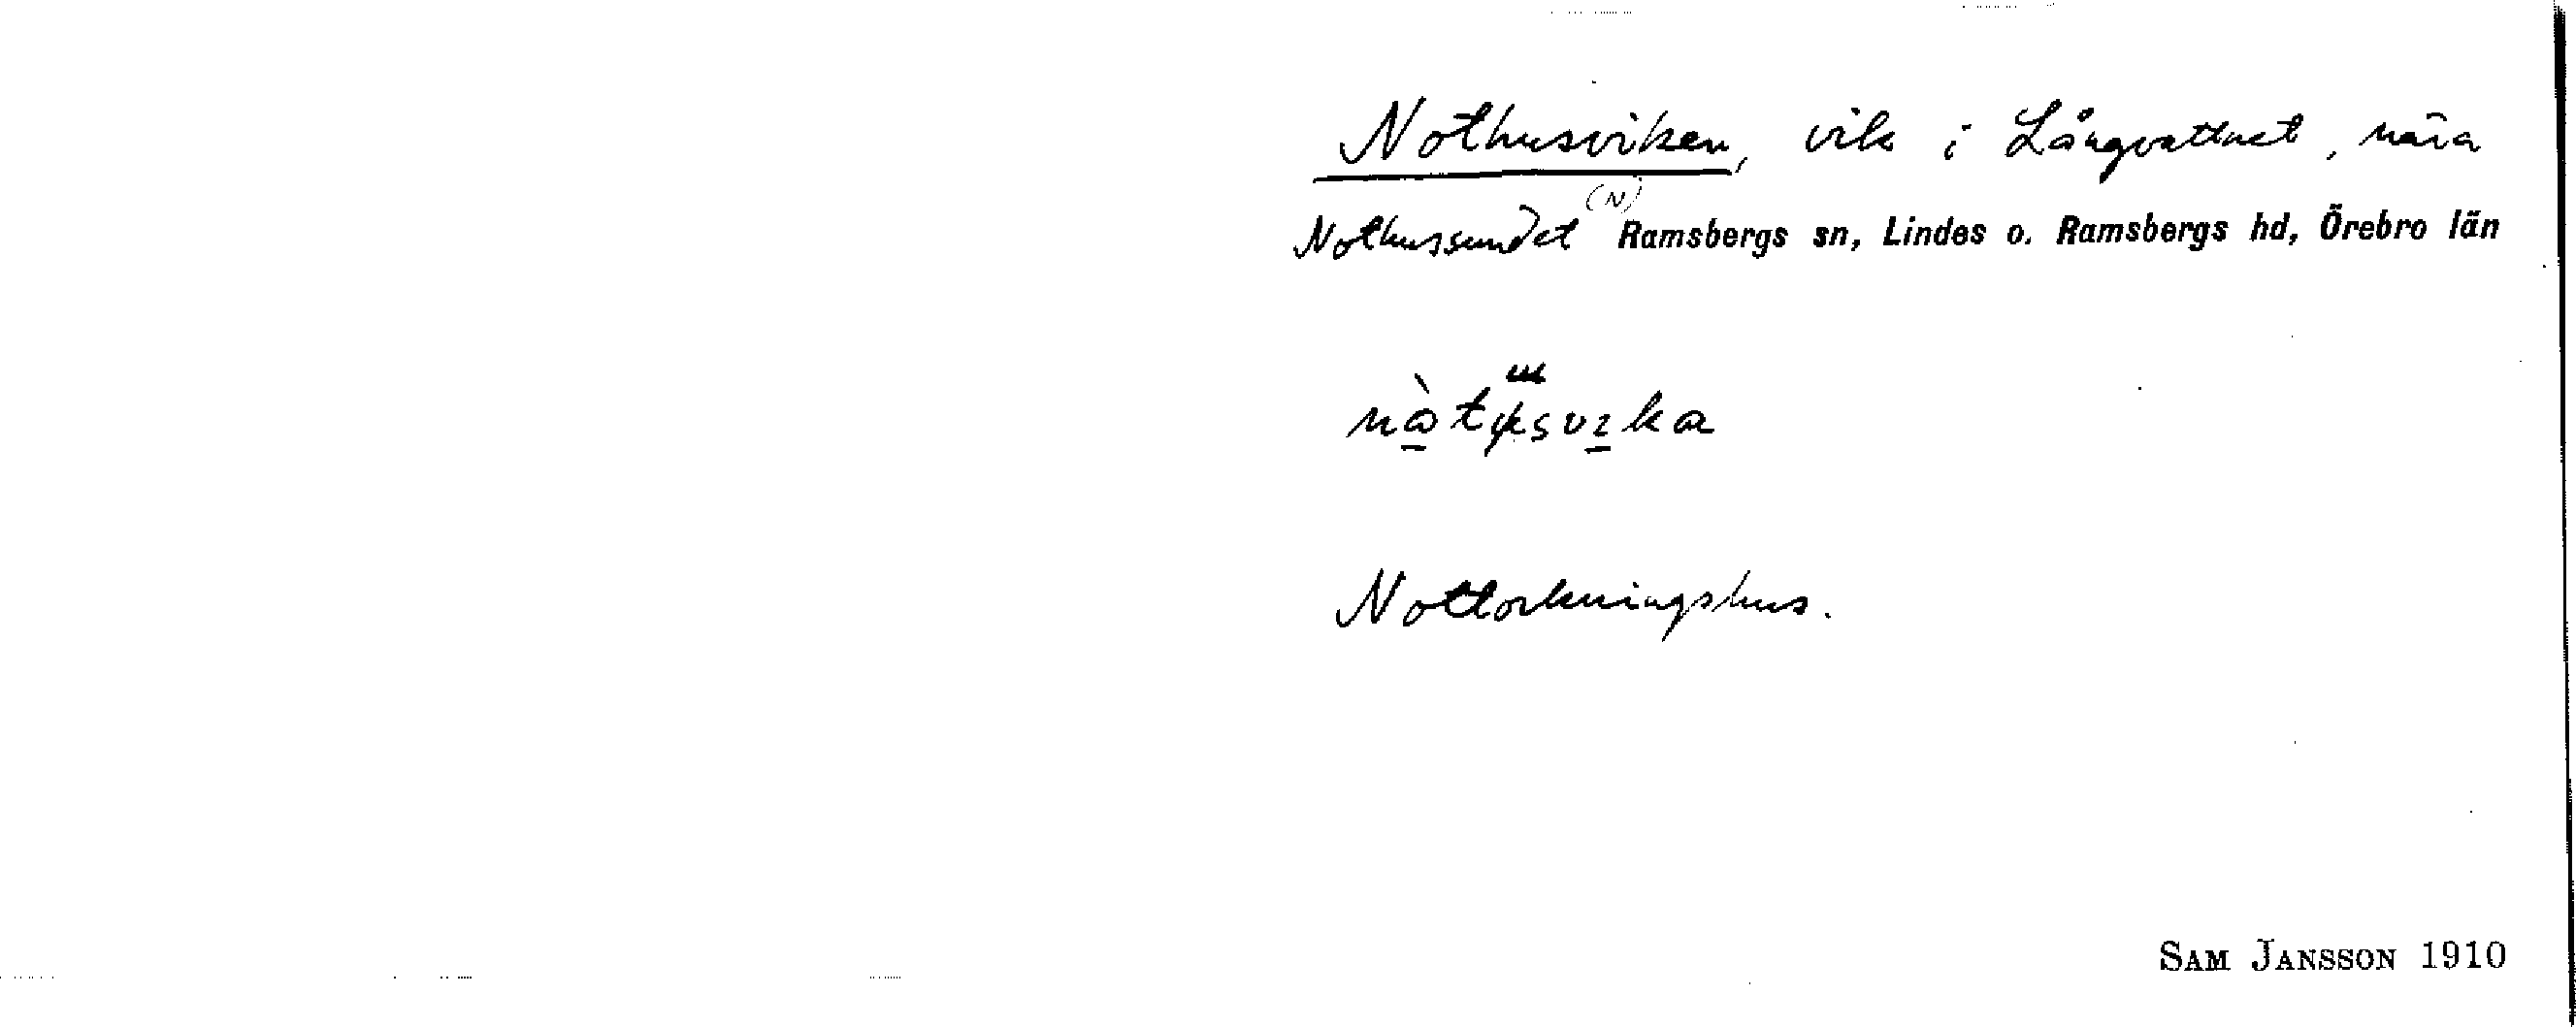 Nothusviken, vik i Långvattnet, nära
Nothussundet (N) Ramsbergs sn, Lindes o. Ramsbergs hd, Örebro län
Nottorkningshus.
SAM JANSSON 1910